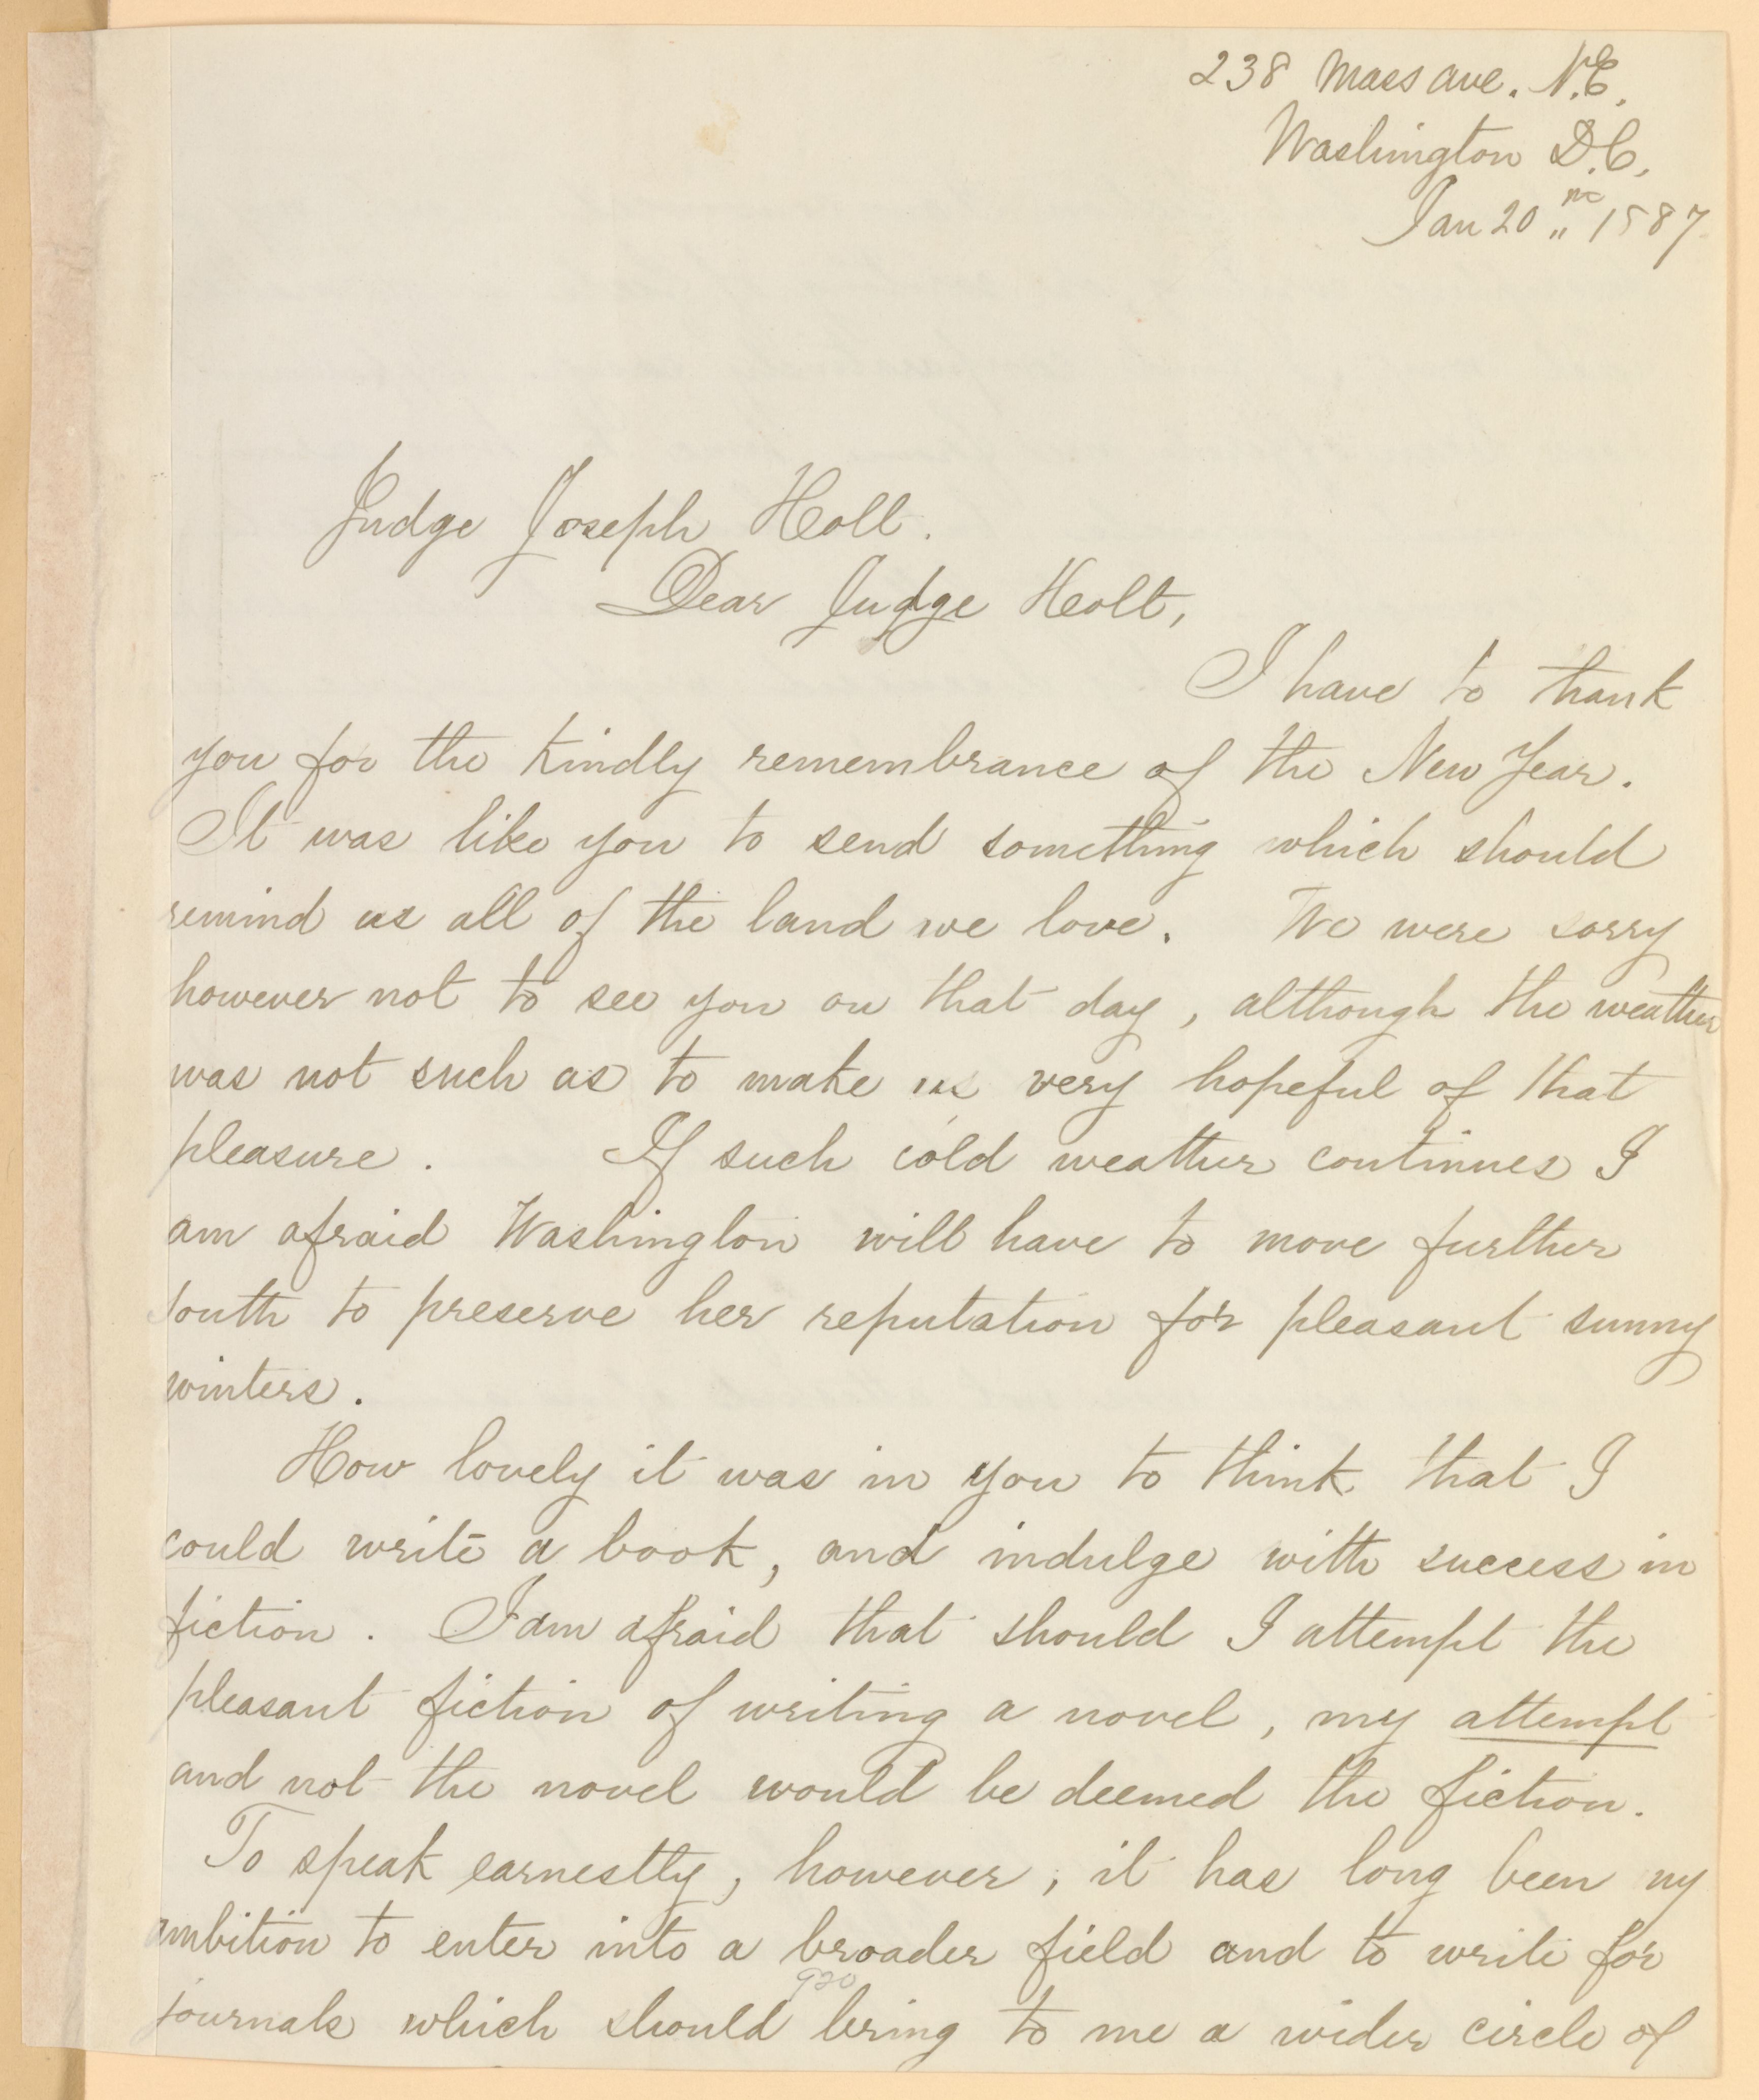 238 Mass ave. N.E.
Washington D.C.
Jan 20 1887
Judge Joseph Holt.
Dear Judge Holt,
I have to thank
you for the kindly remembrance of the New Year.
It was like you to send something which should
remind us all of the land we love. We were sorry
however not to see you on that day, although the weather
was not such as to make us very hopeful of that
pleasure. If such cold weather continues I
am afraid Washington will have to move further
south to preserve her reputation for pleasant sunny
winters.
How lovely it was in you to think that I
could write a book, and indulge with success in
fiction. I am afraid that should I attempt the
pleasant fiction of writing a novel, my attempt
and not the novel would be deemed the fiction.
To speak earnestly, however, it has long been my
ambition to enter into a broader field and to write for
journals which should bring to me a wider circle of